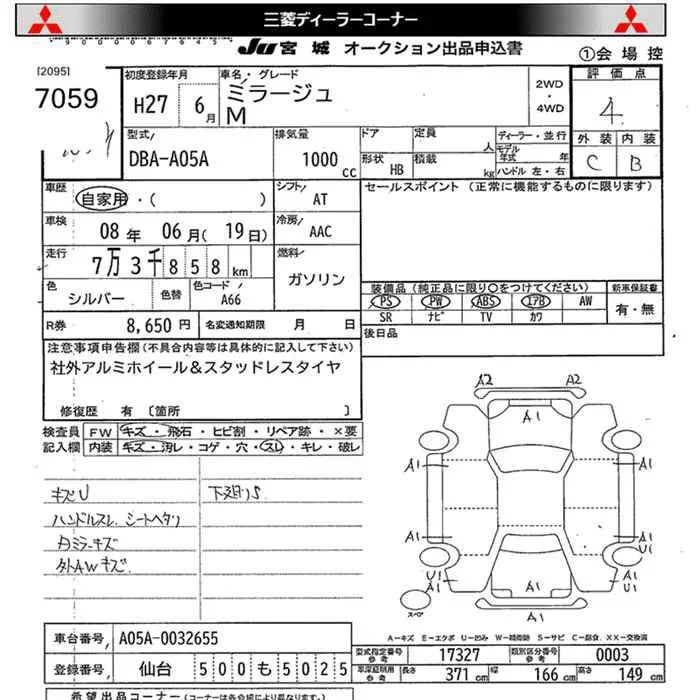 三菱ディーラーコーナー
Ju 宮城 オークション出品申込書
①会場控
[2095]
7059
初度登録年月 H27 6月
車名・グレード
ミラージュ
M
2WD・4WD
評価点 4
外装 C 内装 B
型式 DBA-A05A
排気量 1000cc
ドア 形状 HB
定員 人 積載 kg
ディーラー・並行
モデル年式 年
ハンドル 左・右
車歴 自家用・( )
シフト AT
セールスポイント (正常に機能するものに限ります)
車検 08年 06月(19日)
冷房 AAC
走行 7万3千858km
燃料 ガソリン
色 シルバー 色替 色コード A66
装備品(純正品に限り○をつけてください)
新車保証書 有・無
PS PW ABS エアB AW
SR ナビ TV カワ
R券 8,650円 名変通知期限 月 日
後日品
注意事項申告欄(不具合内容等は具体的に記入して下さい)
社外アルミホイール&スタッドレスタイヤ
修復歴 有 〔箇所 〕
検査員記入欄
FW キズ・飛石・ヒビ割・リペア跡・×要
内装 キズ・汚レ・コゲ・穴・スレ・キレ・破レ
キズU 下廻りS
ハンドルスレ、シートヘタリ
内ミラーキズ
外AWキズ
A2 A2
A1
A1 A1
A1 A1
U1
A1 A1
U1 U1
A1
スペア
A-キズ E-エクボ U-凹み W-補修跡 S-サビ C-腐食、XX-交換済
車台番号 A05A-0032655
登録番号 仙台 500も5025
型式指定番号 参考 17327 類別区分番号 参考 0003
車庫証明用 参考 長さ 371cm 幅 166cm 高さ 149cm
希望出品コーナー